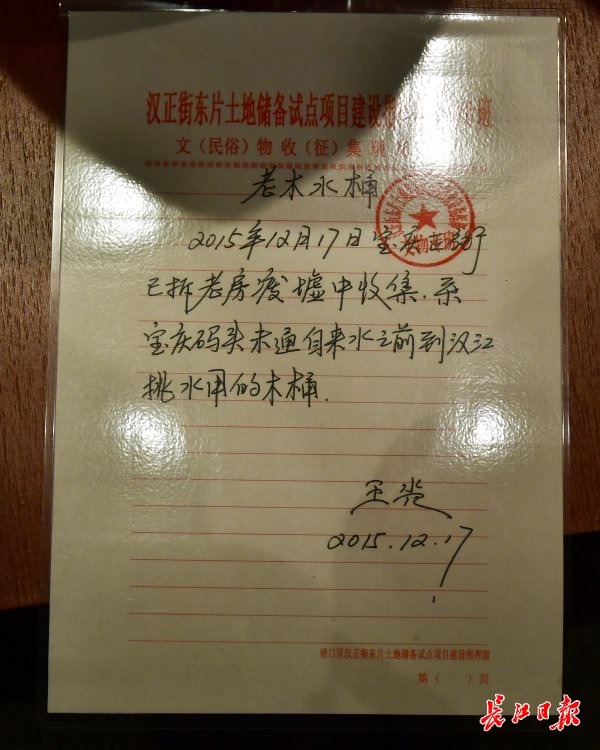 汉正街东片土地储备试点项目建设指
班
文（民俗）物收（征）集
老木水桶
2015年12月17日宝庆
已拆老房废墟中收集.系
宝庆码头未通自来水之前到汉江
挑水用的木桶.
王
2015.12.17
硚口区汉正街东片土地储备试点项目建设指挥部
第（ ）页
长江日报